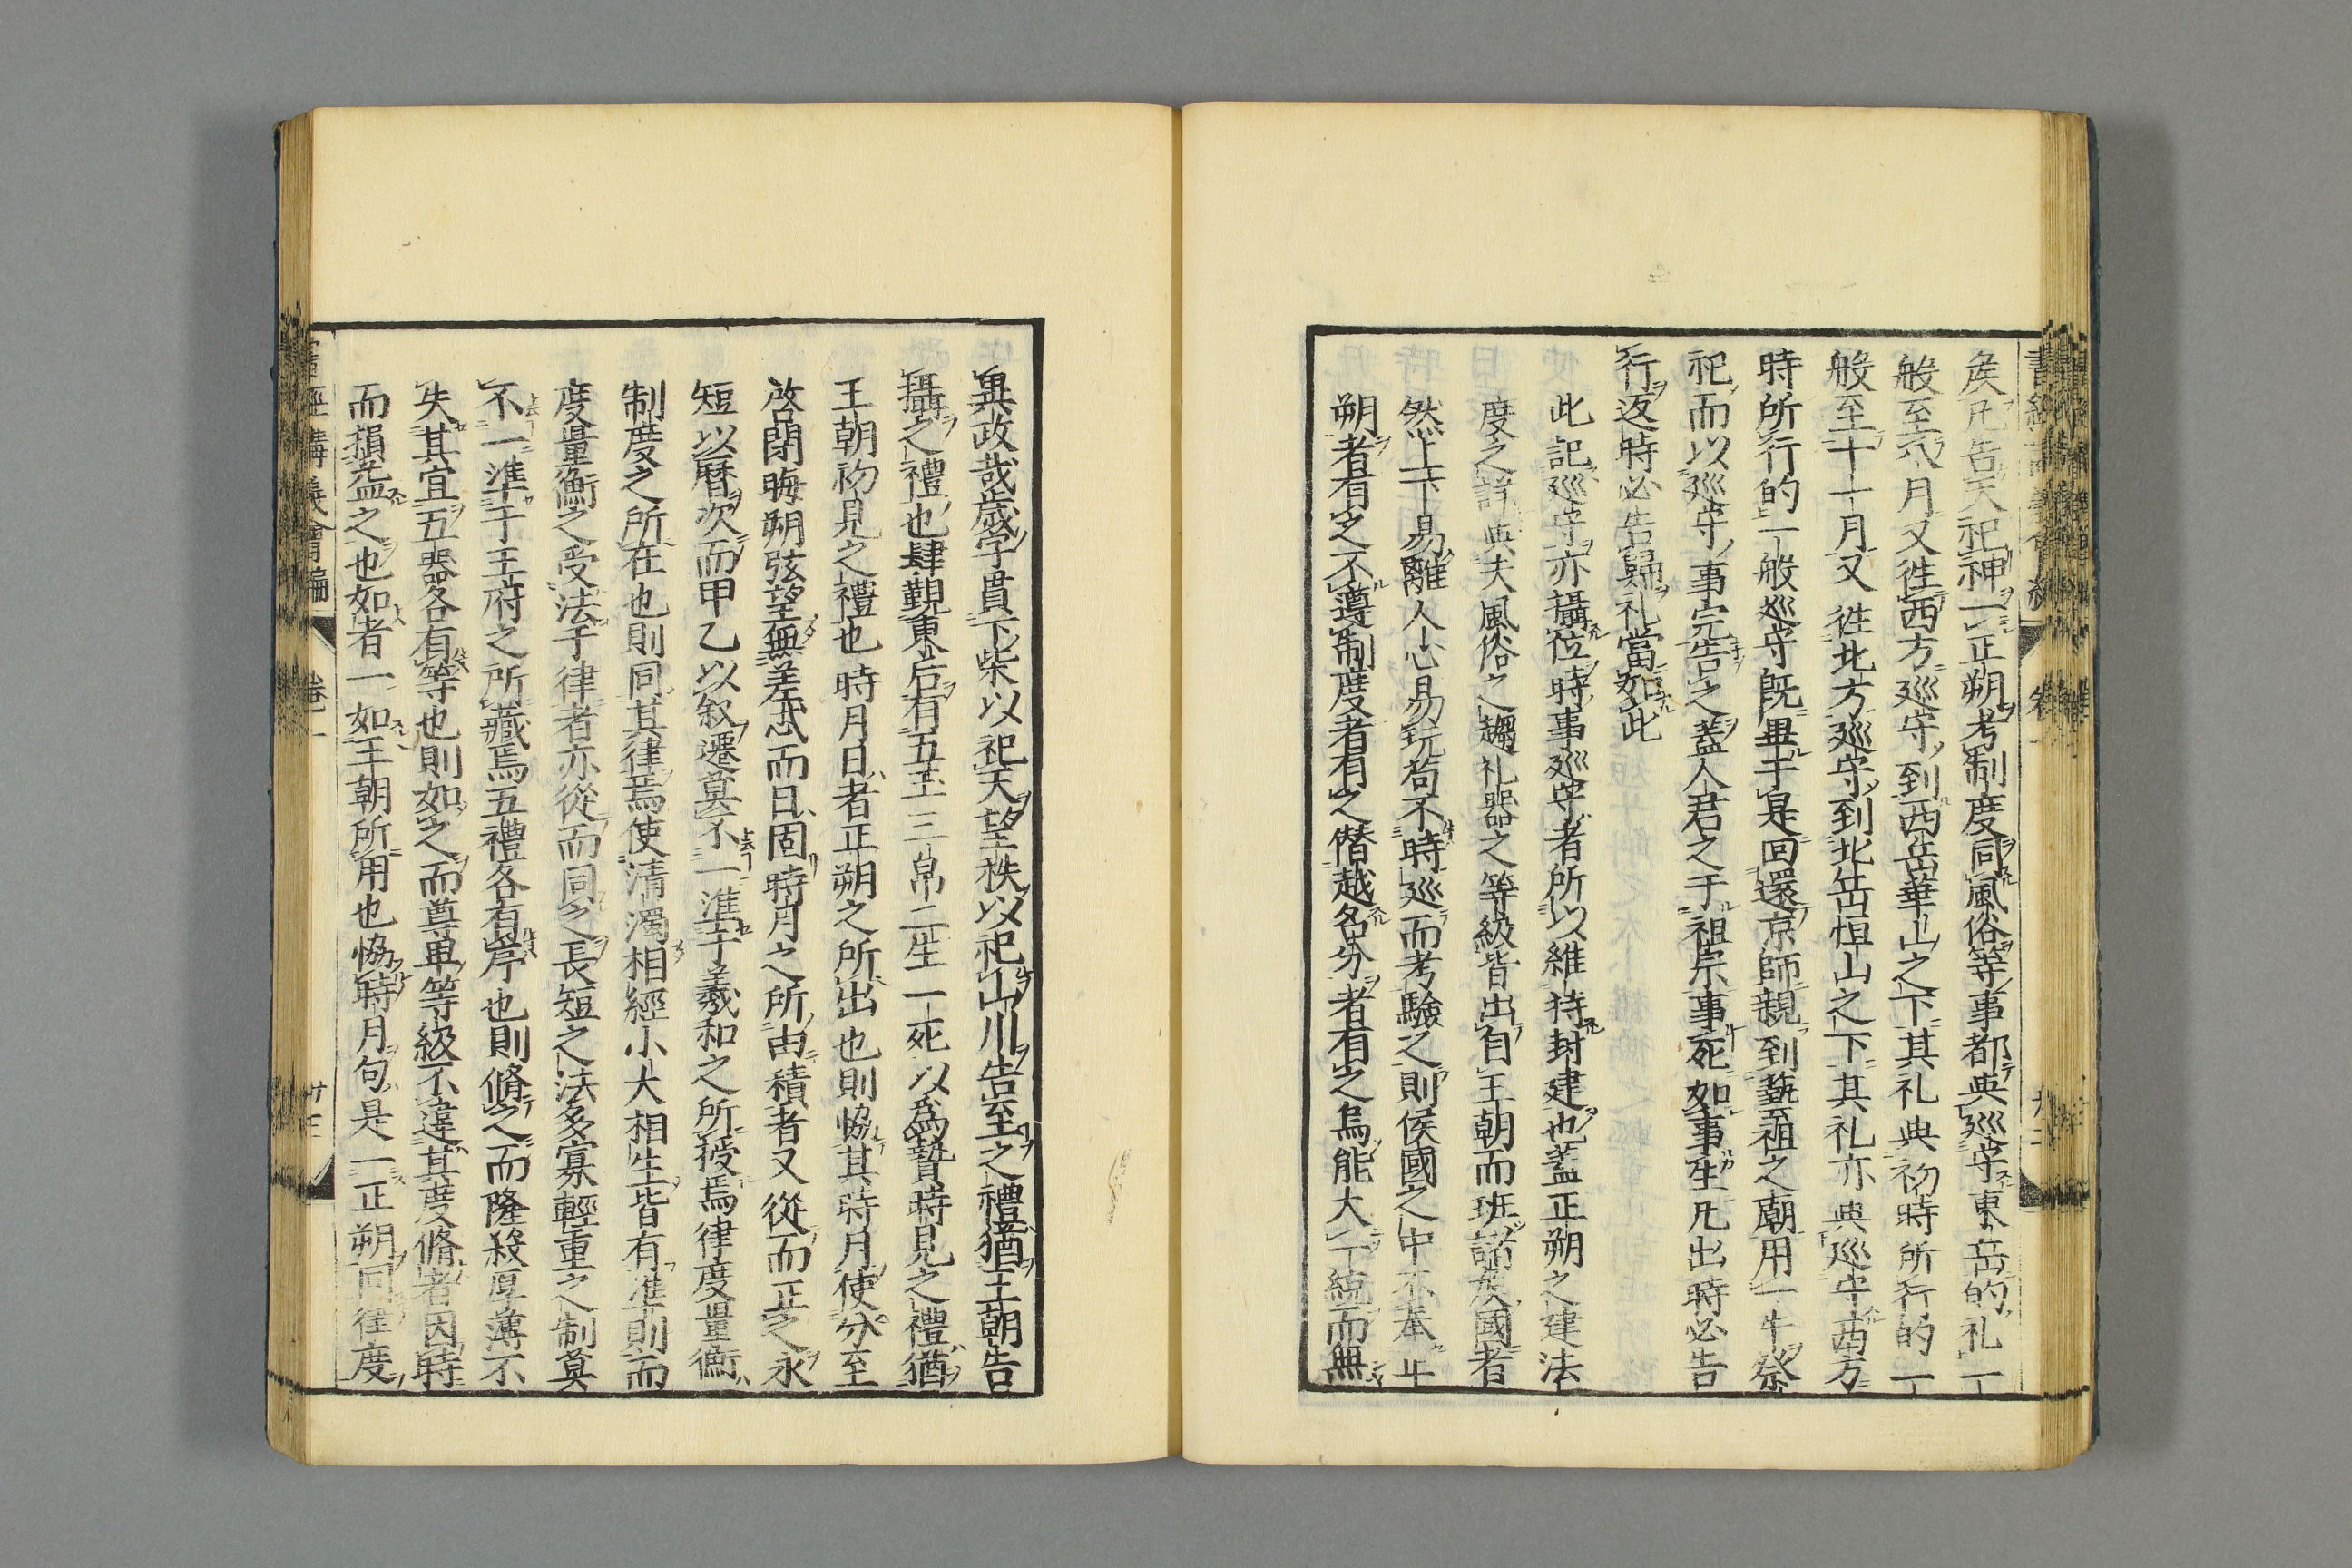 矦凡告天祀神一正朔考制度同風俗等事都與巡守東岳的礼一
般至八月又徃西方巡守到西岳華山之下其礼與初時所行的一
般至十一月又徃北方巡守到北岳恒山之下其礼亦與巡守西方
時所行的一般巡守既畢于是回還京師親到藝祖之廟用一牛祭
祀而以巡守事完告之蓋人君之于祖宗事死如事生凡出時必告
行返時必告歸礼當如此
此記巡守亦攝位時事巡守者所以維持封建也蓋正朔之建法
度之詳與夫風俗之趨礼器之等級皆出自王朝而班諸矦國者
然上下易離人心易玩苟不時巡而考驗之則侯國之中不奉正
朔者有之不遵制度者有之僭越名分者有之烏能大一統而無
異政哉歲字貫下柴以祀天望秩以祀山川告至之禮猶王朝告
攝之禮也肆覲東后有五玉三帛二生一死以為贄時見之禮猶
王朝初見之禮也時月日者正朔之所出也則恊其時月使分至
啓閉晦朔弦望無差忒而日固時月之所由積者又從而正之永
短以曆次而甲乙以叙遷莫不一準于羲和之所授焉律度量衡
制度之所在也則同其律焉使清濁相經小大相生皆有准則而
度量衡之受法于律者亦從而同之長短之法多寡輕重之制莫
不一準于王府之所藏焉五禮各有序也則脩之而隆殺厚薄不
失其宜五器各有等也則如之而尊卑等級不違其度脩者因時
而損益之也如者一如王朝所用也恊時月句是一正朔同律度
書經講義會編 卷一 廿三